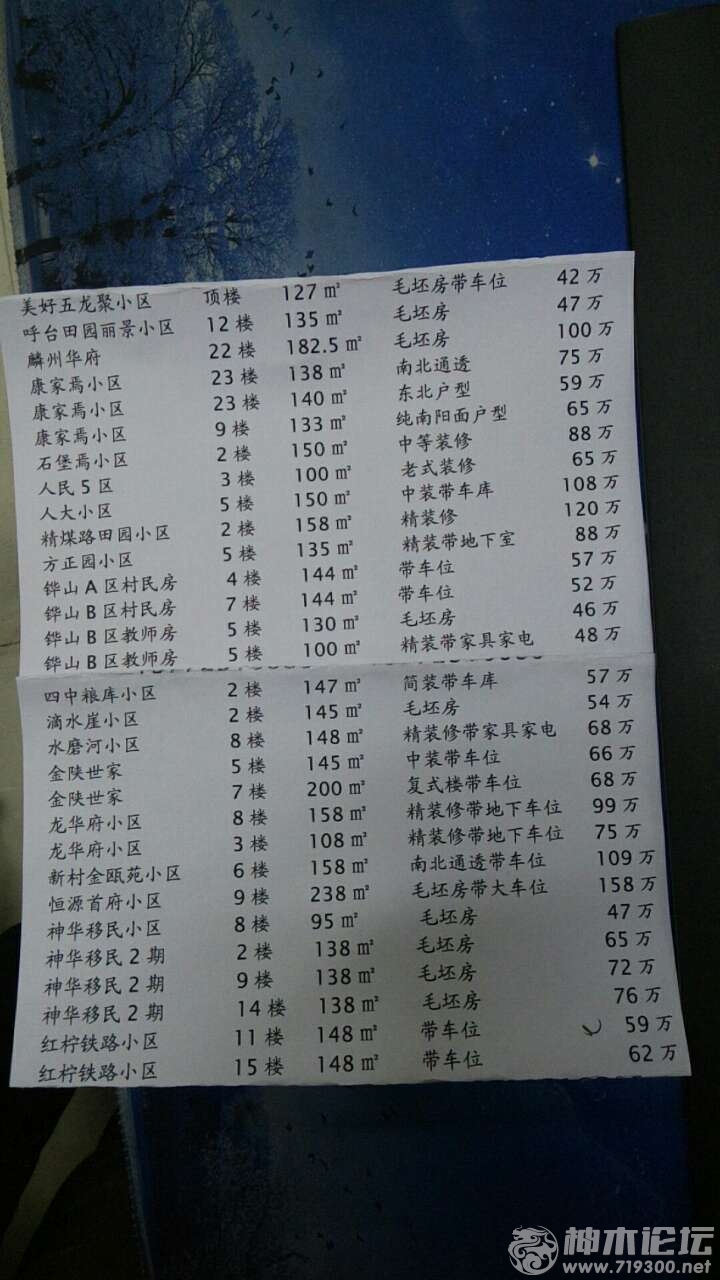 美好五龙聚小区 顶楼 127㎡ 毛坯房带车位 42万
呼台田园丽景小区 12楼 135㎡ 毛坯房 47万
麟州华府 22楼 182.5㎡ 毛坯房 100万
康家焉小区 23楼 138㎡ 南北通透 75万
康家焉小区 23楼 140㎡ 东北户型 59万
康家焉小区 9楼 133㎡ 纯南阳面户型 65万
石堡焉小区 2楼 150㎡ 中等装修 88万
人民5区 3楼 100㎡ 老式装修 65万
人大小区 5楼 150㎡ 中装带车库 108万
精煤路田园小区 2楼 158㎡ 精装修 120万
方正园小区 5楼 135㎡ 精装带地下室 88万
铧山A区村民房 4楼 144㎡ 带车位 57万
铧山B区村民房 7楼 144㎡ 带车位 52万
铧山B区教师房 5楼 130㎡ 毛坯房 46万
铧山B区教师房 5楼 100㎡ 精装带家具家电 48万
四中粮库小区 2楼 147㎡ 简装带车库 57万
滴水崖小区 2楼 145㎡ 毛坯房 54万
水磨河小区 8楼 148㎡ 精装修带家具家电 68万
金陕世家 5楼 145㎡ 中装带车位 66万
金陕世家 7楼 200㎡ 复式楼带车位 68万
龙华府小区 8楼 158㎡ 精装修带地下车位 99万
龙华府小区 3楼 108㎡ 精装修带地下车位 75万
新村金瓯苑小区 6楼 158㎡ 南北通透带车位 109万
恒源首府小区 9楼 238㎡ 毛坯房带大车位 158万
神华移民小区 8楼 95㎡ 毛坯房 47万
神华移民2期 2楼 138㎡ 毛坯房 65万
神华移民2期 9楼 138㎡ 毛坯房 72万
神华移民2期 14楼 138㎡ 毛坯房 76万
红柠铁路小区 11楼 148㎡ 带车位 59万
红柠铁路小区 15楼 148㎡ 带车位 62万
神木论坛
www.719300.net